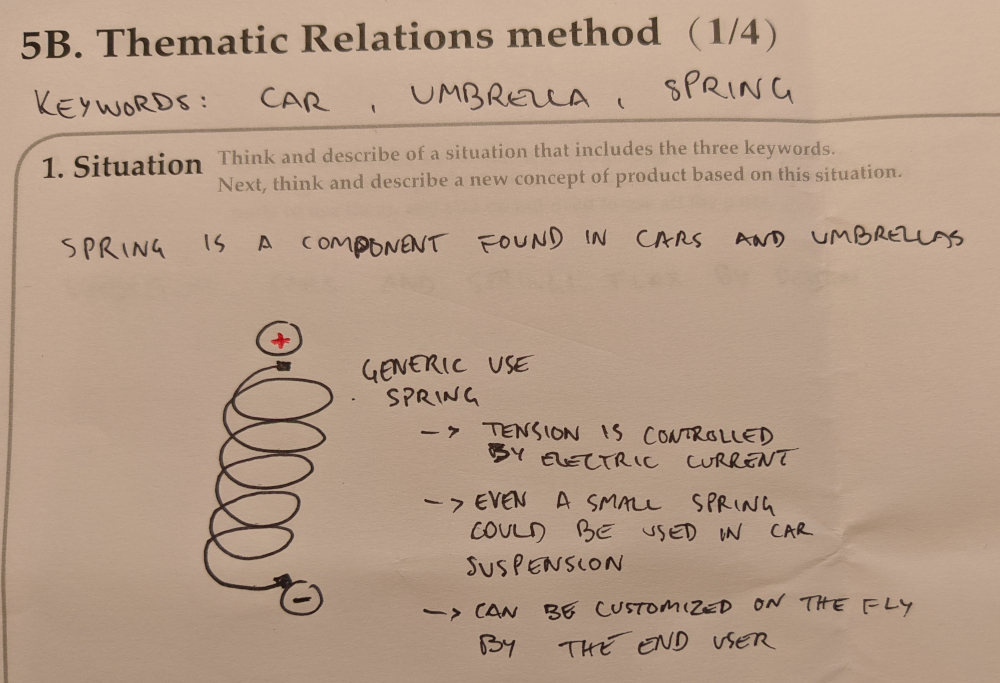 5B. Thematic Relations method (1/4)
KEYWORDS: CAR, UMBRELLA, SPRING
1. Situation Think and describe of a situation that includes the three keywords.
Next, think and describe a new concept of product based on this situation.
SPRING IS A COMPONENT FOUND IN CARS AND UMBRELLAS
+
GENERIC USE
SPRING
-> TENSION IS CONTROLLED
BY ELECTRIC CURRENT
-> EVEN A SMALL SPRING
COULD BE USED IN CAR
SUSPENSION
-
-> CAN BE CUSTOMIZED ON THE FLY
BY THE END USER